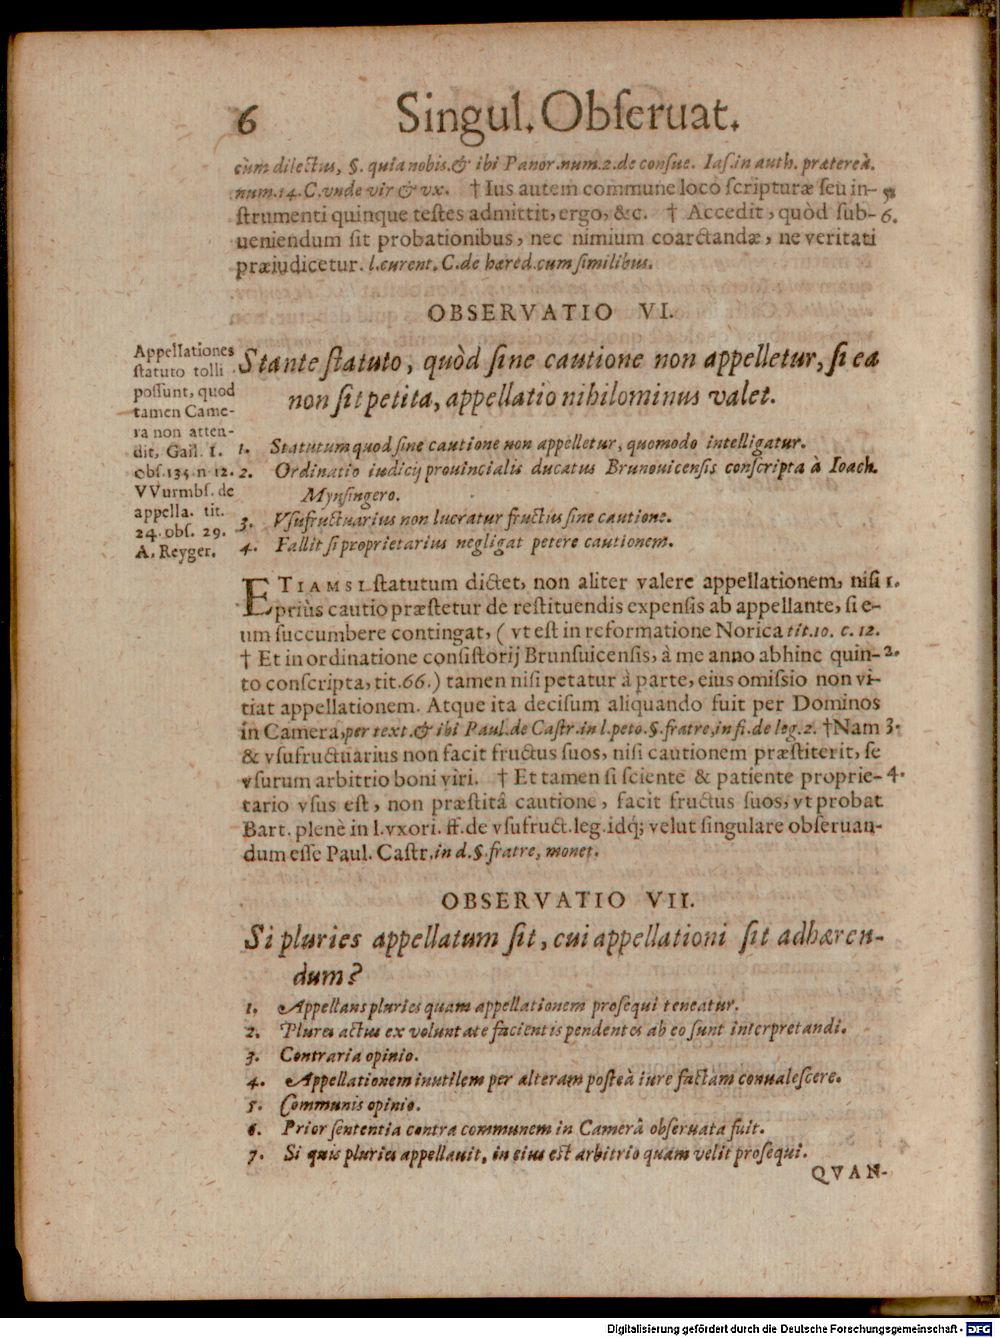 6 Singul. Obſeruat.
cùm dilectus, §. quia nobis. & ibi Panor. num. 2. de conſue. Iaſ. in auth. prætereà.
num. 14. C. vnde vir & vx. † Ius autem commune loco ſcripturæ ſeu in- 5.
ſtrumenti quinque teſtes admittit, ergo, &c. † Accedit, quòd ſub- 6.
ueniendum ſit probationibus, nec nimium coarctandæ, ne veritati
præiudicetur. l. curent. C. de hæred. cum ſimilibus.
OBSERVATIO VI.
Appellationes
ſtatuto tolli
poſſunt, quod
tamen Came-
ra non atten-
dit, Gail. 1.
obſ. 134 n 12.
VVurmbſ. de
appella. tit.
24. obſ. 29.
A. Reyger.
Stante ſtatuto, quòd ſine cautione non appelletur, ſi ea
non ſit petita, appellatio nihilominus valet.
1. Statutum quod ſine cautione non appelletur, quomodo intelligatur.
2. Ordinatio iudicij prouincialis ducatus Brunouicenſis conſcripta à Ioach.
Mynſingero.
3. Vſufructuarius non lucratur fructus ſine cautione.
4. Fallit ſi proprietarius negligat petere cautionem.
ETIAMSI ſtatutum dictet, non aliter valere appellationem, niſi 1.
priùs cautio præſtetur de reſtituendis expenſis ab appellante, ſi e-
um ſuccumbere contingat, ( vt eſt in reformatione Norica tit. 10. c. 12.
† Et in ordinatione conſiſtorij Brunſuicenſis, à me anno abhinc quin- 2.
to conſcripta, tit. 66.) tamen niſi petatur à parte, eius omiſsio non vi-
tiat appellationem. Atque ita deciſum aliquando fuit per Dominos
in Camera, per text. & ibi Paul. de Caſtr. in l. peto. §. fratre, in fi. de leg. 2. † Nam 3.
& vſufructuarius non facit fructus ſuos, niſi cautionem præſtiterit, ſe
vſurum arbitrio boni viri. † Et tamen ſi ſciente & patiente proprie- 4.
tario vſus eſt, non præſtitâ cautione, facit fructus ſuos, vt probat
Bart. plenè in l. vxori. ff. de vſufruct. leg. idq́; velut ſingulare obſeruan-
dum eſſe Paul. Caſtr. in d. §. fratre, monet.
OBSERVATIO VII.
Si pluries appellatum ſit, cui appellationi ſit adhæren-
dum?
1. Appellans pluries quam appellationem proſequi teneatur.
2. Plures actus ex voluntate facientis pendentes ab eo ſunt interpretandi.
3. Contraria opinio.
4. Appellationem inutilem per alteram poſteà iure factam conualeſcere.
5. Communis opinio.
6. Prior ſententia contra communem in Camerâ obſeruata fuit.
7. Si quis pluries appellauit, in eius eſt arbitrio quam velit proſequi.
QVAN-
Digitalisierung gefördert durch die Deutsche Forschungsgemeinschaft - DFG